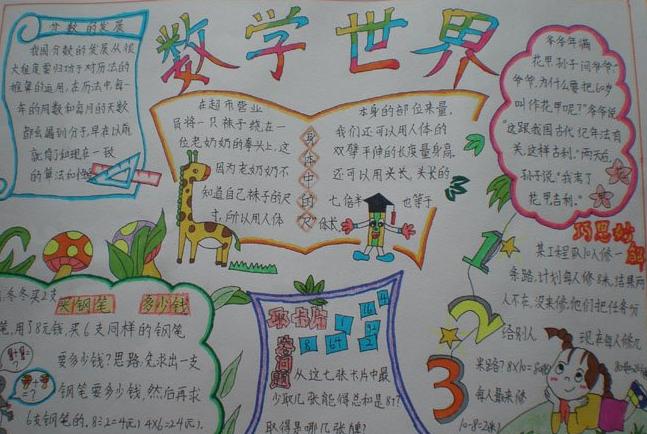 数学世界
分数的发展
我国分数的发展从很
大程度要归功于对历法的
推算的运用,在历法中每一
年的周数和每月的天数
都会遇到分子,早在以前
就有了和现在一致
的算法和
在超市营业
员将一只袜子绕在一
位老奶奶的拳头上,这
因为老奶奶不
知道自己袜子的尺
寸,所以用人体
身体中的"尺"
本身的部位来量,
我们还可以用人体的
双臂平伸的长度量身高,
还可以用头长,头长的
七倍半 也等于
体长
爷爷年满
花甲,孙子问爷爷:"
爷爷,为什么要把60岁
叫作花甲呢?"爷爷说
"这跟我国古代纪年法有
关,这样吉利。"两天后,
孙子说:"我考了
花甲吉利。"
买钢笔 多少钱
冬冬买2支
笔,用了8元钱,买6支同样的钢笔
要多少钱?思路:先求出一支
钢笔要多少钱,然后再求
6支钢笔的。8÷2=4(元) 4×6=24(元)。
取卡片
答问题
从这七张卡片中最
少取几张能得总和是81?
取得是哪几张牌?
巧思妙解
1
2
3
某工程队10人修一
条路,计划每人修8米,结果两
人不在,没来修,他们把任务分
给别人 现在每人修几
米路?
每人最来修
10-8=2(米)